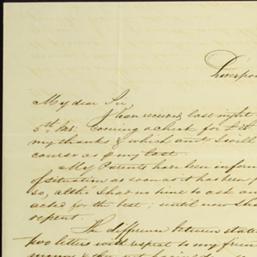 Liverpoo
My dear Sir,
I have received last night
5th Inst. covering a check for £
my thanks & which amt I will
course as p my last
My Parents have been inform
of situation as soon as it has been p
so, altho' I had no time to ask an
acted for the best; until now I ha
repent.
The difference between state
two letters with respect to my frien